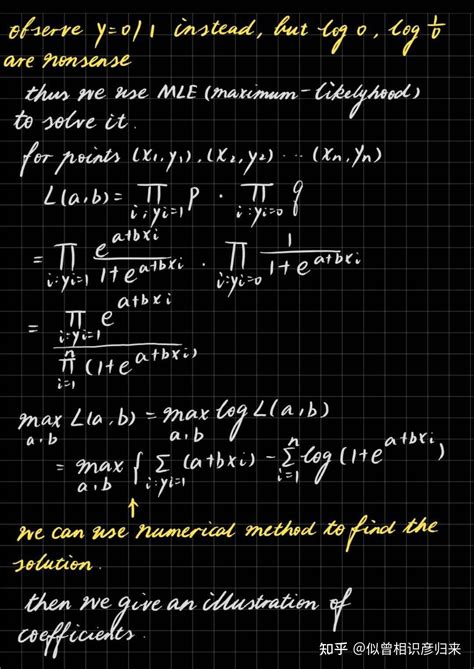 observe y=0/1 instead, but log 0, log 1/0
are nonsense
thus we use MLE (maximum-likelyhood)
to solve it.
for points (x₁,y₁), (x₂,y₂) ··· (xₙ,yₙ)
L(a,b) = ∏_{i:yi=1} p · ∏_{i:yi=0} q
= ∏_{i:yi=1} e^{a+bxi} / (1+e^{a+bxi}) · ∏_{i:yi=0} 1 / (1+e^{a+bxi})
= ∏_{i:yi=1} e^{a+bxi} / ∏_{i=1}^{n} (1+e^{a+bxi})
max_{a,b} L(a,b) = max_{a,b} log L(a,b)
= max_{a,b} { ∑_{i:yi=1} (a+bxi) - ∑_{i=1}^{n} log (1+e^{a+bxi})
↑
we can use numerical method to find the
solution.
then we give an illustration of
coefficients.
知乎 @似曾相识彦归来